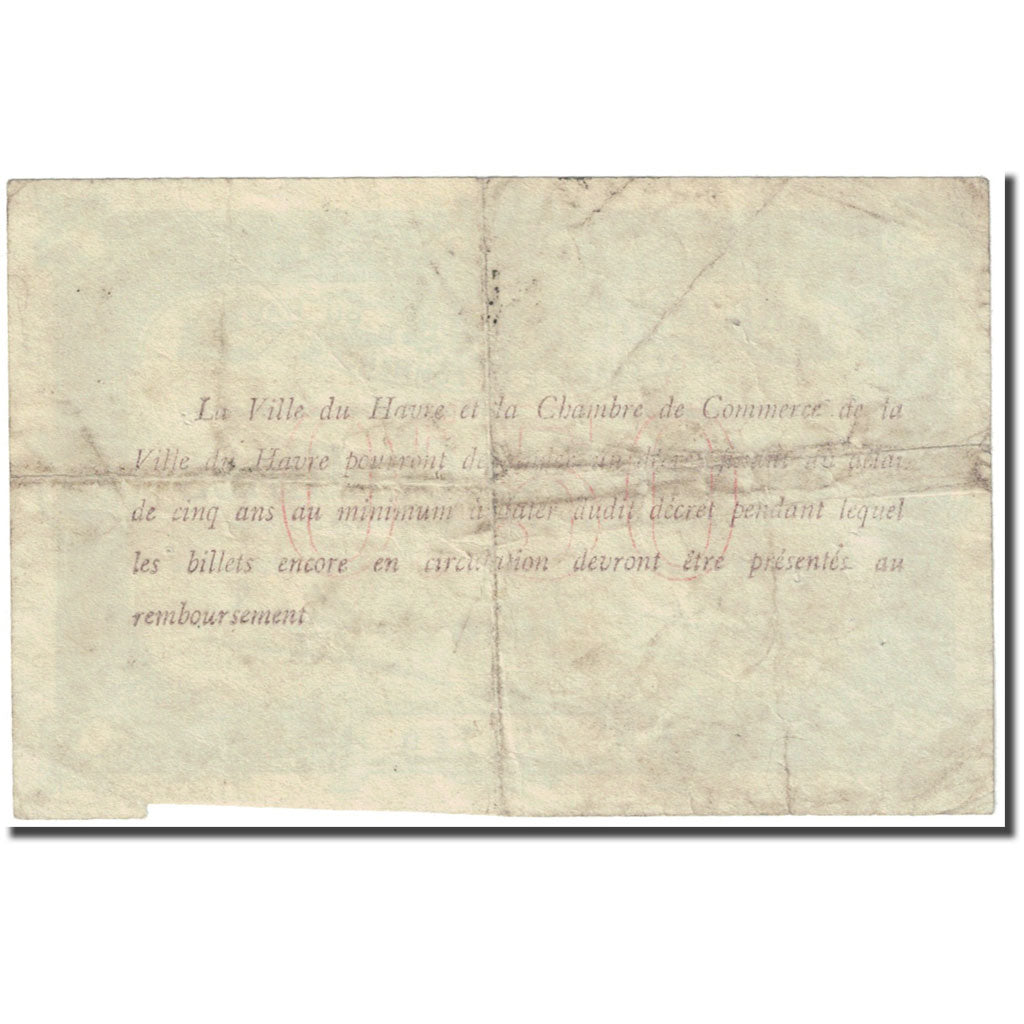 La Ville du Havre et la Chambre de Commerce de la
Ville du Havre pourront demander un décret fixant un délai
de cinq ans au minimum à dater dudit décret pendant lequel
les billets encore en circulation devront être présentés au
remboursement